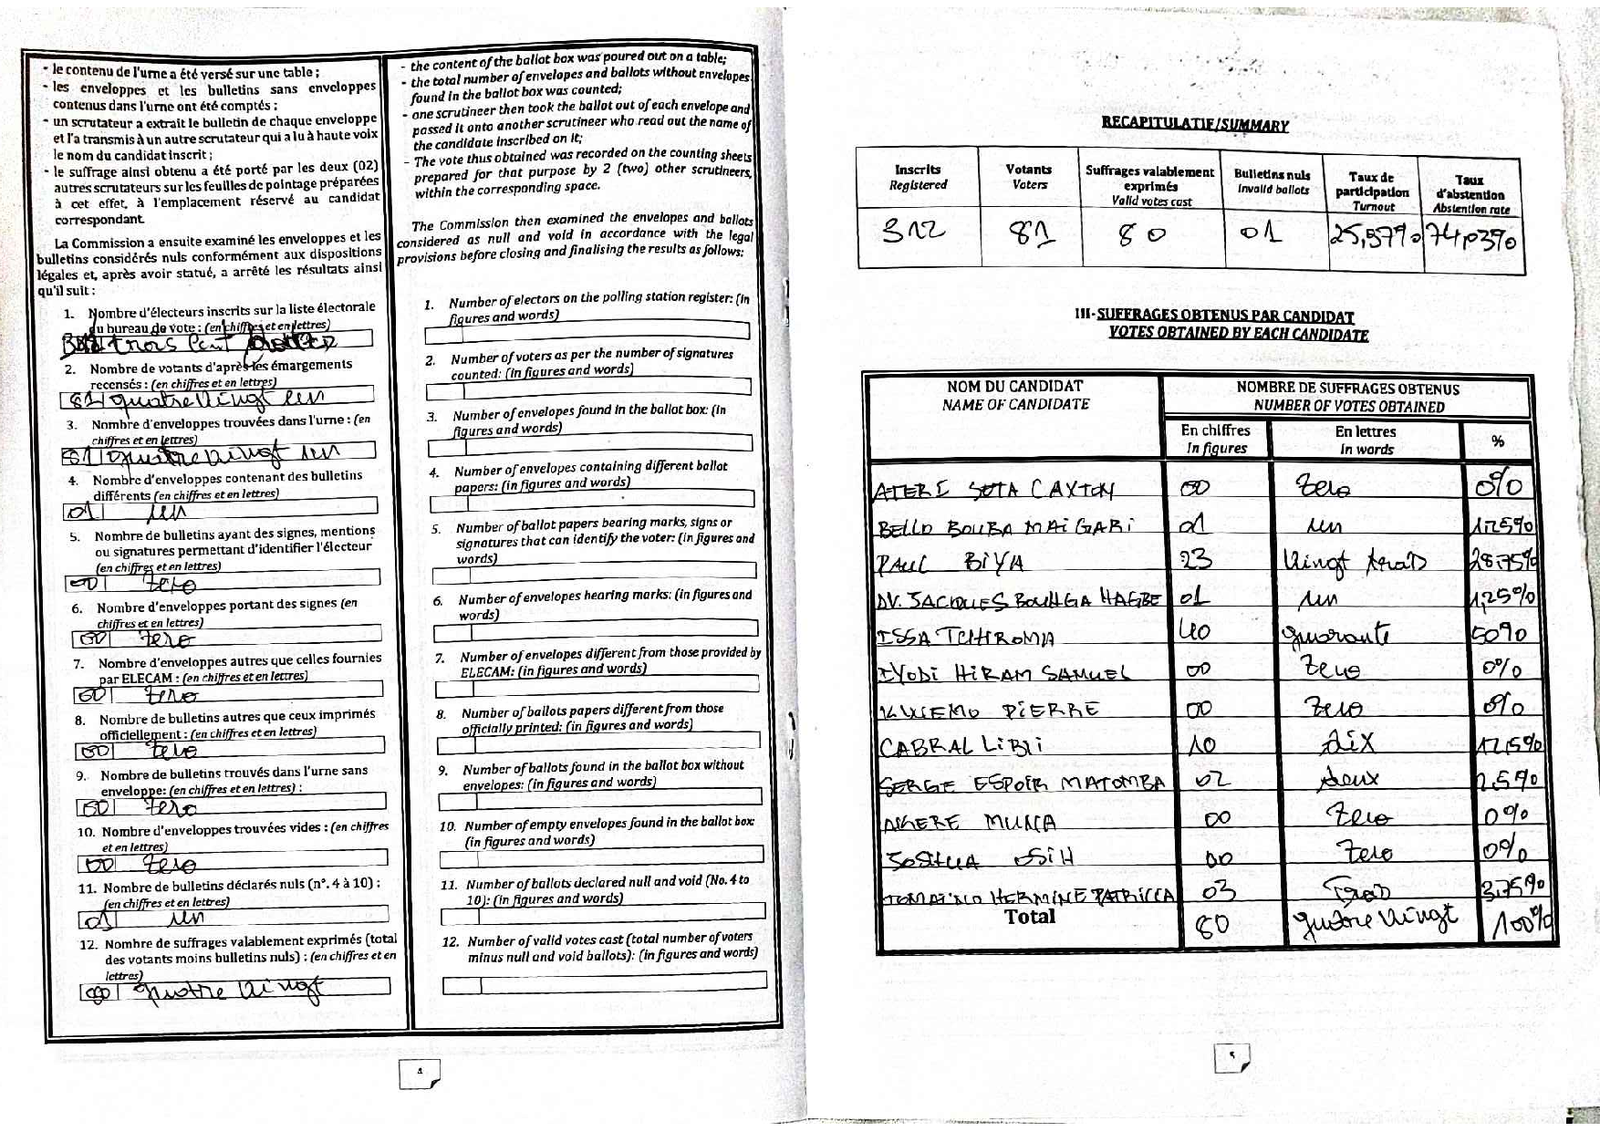 - le contenu de l'urne a été versé sur une table ;
- les enveloppes et les bulletins sans enveloppes
contenus dans l'urne ont été comptés ;
- un scrutateur a extrait le bulletin de chaque enveloppe
et l'a transmis à un autre scrutateur qui a lu à haute voix
le nom du candidat inscrit ;
- le suffrage ainsi obtenu a été porté par les deux (02)
autres scrutateurs sur les feuilles de pointage préparées
à cet effet, à l'emplacement réservé au candidat
correspondant.
La Commission a ensuite examiné les enveloppes et les
bulletins considérés nuls conformément aux dispositions
légales et, après avoir statué, a arrêté les résultats ainsi
qu'il suit :
1. Nombre d'électeurs inscrits sur la liste électorale
du bureau de vote : (en chiffres et en lettres)
312 trois cent
2. Nombre de votants d'après les émargements
recensés : (en chiffres et en lettres)
81 quatre vingt un
3. Nombre d'enveloppes trouvées dans l'urne : (en
chiffres et en lettres)
81 quatre vingt un
4. Nombre d'enveloppes contenant des bulletins
différents (en chiffres et en lettres)
01 un
5. Nombre de bulletins ayant des signes, mentions
ou signatures permettant d'identifier l'électeur
(en chiffres et en lettres)
00 zero
6. Nombre d'enveloppes portant des signes (en
chiffres et en lettres)
00 zero
7. Nombre d'enveloppes autres que celles fournies
par ELECAM : (en chiffres et en lettres)
00 zero
8. Nombre de bulletins autres que ceux imprimés
officiellement : (en chiffres et en lettres)
00 zero
9. Nombre de bulletins trouvés dans l'urne sans
enveloppe: (en chiffres et en lettres) :
00 zero
10. Nombre d'enveloppes trouvées vides : (en chiffres
et en lettres)
00 zero
11. Nombre de bulletins déclarés nuls (n°. 4 à 10) :
(en chiffres et en lettres)
01 un
12. Nombre de suffrages valablement exprimés (total
des votants moins bulletins nuls) : (en chiffres et en
lettres)
80 quatre vingt
- the content of the ballot box was poured out on a table;
- the total number of envelopes and ballots without envelopes
found in the ballot box was counted;
- one scrutineer then took the ballot out of each envelope and
passed it onto another scrutineer who read out the name of
the candidate inscribed on it;
- The vote thus obtained was recorded on the counting sheets
prepared for that purpose by 2 (two) other scrutineers,
within the corresponding space.
The Commission then examined the envelopes and ballots
considered as null and void in accordance with the legal
provisions before closing and finalising the results as follows:
1. Number of electors on the polling station register: (in
figures and words)
2. Number of voters as per the number of signatures
counted: (in figures and words)
3. Number of envelopes found in the ballot box: (in
figures and words)
4. Number of envelopes containing different ballot
papers: (in figures and words)
5. Number of ballot papers bearing marks, signs or
signatures that can identify the voter: (in figures and
words)
6. Number of envelopes hearing marks: (in figures and
words)
7. Number of envelopes different from those provided by
ELECAM: (in figures and words)
8. Number of ballots papers different from those
officially printed: (in figures and words)
9. Number of ballots found in the ballot box without
envelopes: (in figures and words)
10. Number of empty envelopes found in the ballot box:
(in figures and words)
11. Number of ballots declared null and void (No. 4 to
10): (in figures and words)
12. Number of valid votes cast (total number of voters
minus null and void ballots): (in figures and words)
4
RECAPITULATIF/SUMMARY
Inscrits Registered Votants Voters Suffrages valablement exprimés Valid votes cast Bulletins nuls Invalid ballots Taux de participation Turnout Taux d'abstention Abstention rate
312 81 80 01 25,97% 74,03%
III- SUFFRAGES OBTENUS PAR CANDIDAT
VOTES OBTAINED BY EACH CANDIDATE
NOM DU CANDIDAT NOMBRE DE SUFFRAGES OBTENUS
NAME OF CANDIDATE NUMBER OF VOTES OBTAINED
En chiffres En lettres %
In figures In words
ATEKI SETA CAXTON 00 zero 0%
BELLO BOUBA MAIGARI 01 un 1,25%
PAUL BIYA 23 vingt trois 28,75%
JACQUES BOUHGA HAGBE 01 un 1,25%
ISSA TCHIROMA 40 quarante 50%
IYODI HIRAM SAMUEL 00 zero 0%
KWEMO PIERRE 00 zero 0%
CABRAL LIBII 10 dix 12,5%
SERGE ESPOIR MATOMBA 02 deux 2,5%
AKERE MUNA 00 zero 0%
JOSHUA OSIH 00 zero 0%
TOMAINO HERMINE PATRICIA 03 trois 3,75%
Total 80 quatre vingt 100%
5